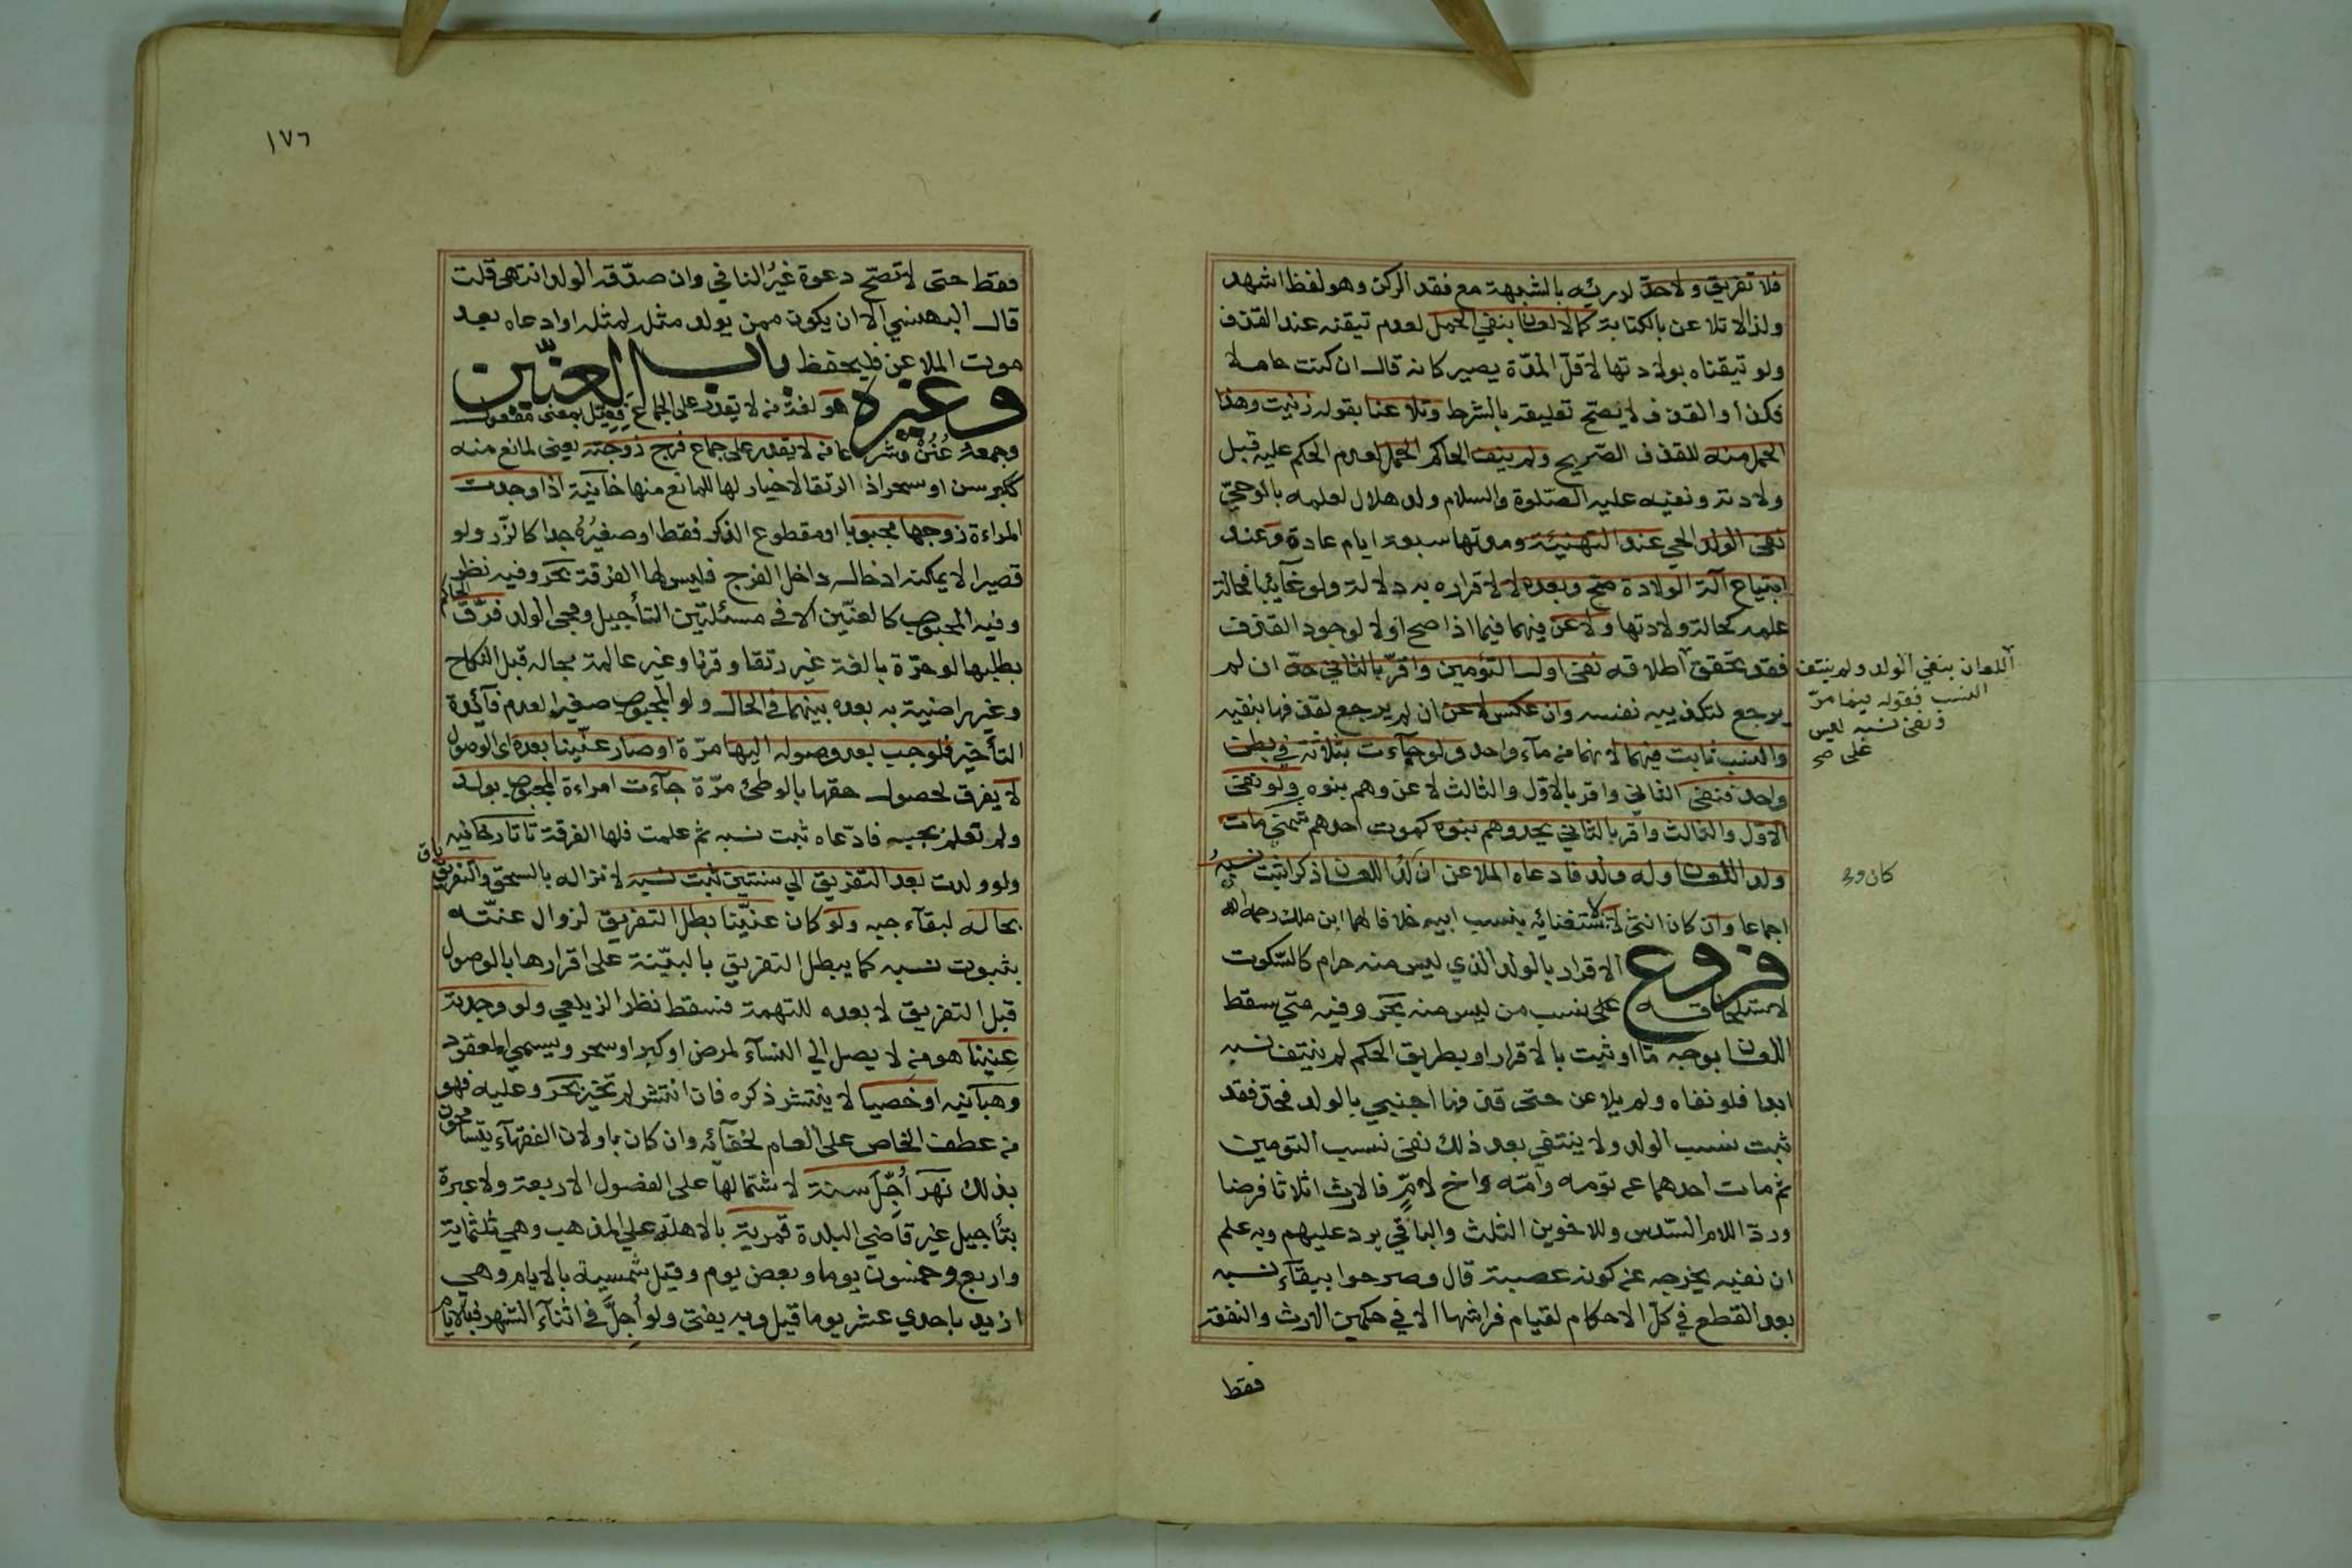 فلا تفريق ولاحدّ لدرئه بالشبهة مع فقد الركن وهو لفظ اشهد
ولذا لا تلاعن بالكتابة كما لا لعان بنفي الحمل لعدم تيقنه عند القذف
ولو تيقناه بولادتها لاقلّ المدّة يصير كانه قال ان كنت حاملا
فكذا والقذف لا يصح تعليقه بالشرط وتلاعنا بقوله زنيت وهذا
الحمل منه للقذف الصّريح ولم ينف الحاكم الحمل لعدم الحكم عليه قبل
ولادته ونفيه عليه الصّلوة والسلام ولد هلال لعلمه بالوحيّ
نفى الولد الحي عند التهنئة ومدتها سبعة ايام عادة وعند
ابتياع آلة الولادة صح وبعده لا لاقراره به دلالة ولو غآئبا فحالة
علمه كحالة ولادتها ولاعن فيهما فيما اذا صح اولا لوجود القذف
فقد تحقق اطلاقه نفى اول التؤمين واقرّ بالثاني حدّ ان لم
اللعان بنفي الولد ولم ينتف
النسب فقوله فيما مرّ
ونفى نسبه ليس
على صح
يرجع لتكذيبه نفسه وان عكس لاعن ان لم يرجع لقذفها بنفيه
والنسب ثابت فيهما لانهما من مآء واحد ولو جآءت بثلاثة في بطن
واحد فنفى الثاني واقر بالاوّل والثالث لاعن وهم بنوه ولو نفى
الاوّل والثالث واقر بالثاني يحد وهم بنوه كموت احدهم شمني مات
ولد اللعان وله ولد فادعاه الملاعن ان ولد اللعان ذكرا ثبت نسبه
كان
اجماعا وان كان انثى لا لاستغنائه بنسب ابيه خلافا لهما ابن ملك رحمه الله
فروع الاقرار بالولد الذي ليس منه حرام كالسّكوت
لاستلحاقه على نسب من ليس منه بحر وفيه متى سقط
اللعان بوجه مّا او ثبت بالاقرار او بطريق الحكم لم ينتف نسبه
ابدا فلو نفاه ولم يلاعن حتى قذفها اجنبي بالولد فحدّ فقد
ثبت نسب الولد ولا ينتفي بعد ذلك نفى نسب التومين
ثم مات احدهما عن تؤمه وامّه واخ لامّ فالارث اثلاثا فرضا
وردّا للام السّدس وللاخوين الثلث والباقي يرد عليهم وبه علم
ان نفيه يخرجه عن كونه عصبة قال وصرحوا ببقآء نسبه
بعد القطع في كلّ الاحكام لقيام فراشها الا في حكمين الارث والنفقة
فقط
١٧٦
فقط حتى لا تصّح دعوة غير النافي وان صدّقه الولد انتهى قلت
قال البهنسي الا ان يكون ممن يولد مثله لمثله او ادعاه بعد
موت الملاعن فليحفظ باب العنّين
وغيره هو لغة من لا يقدر على الجماع فعيل بمعنى مفعول
وجمعه عُنُنْ وشرعا من لا يقدر على جماع فرج زوجته يعني لمانع منه
ككبر سن او سحر اذ الرتقا لا خيار لها للمانع منها خانية اذا وجدت
المراءة زوجها مجبوبا او مقطوع الذكر فقط او صغيره جدا كالزّر ولو
قصيرا لا يمكنه ادخاله داخل الفرج فليس لها الفرقة بحر وفيه نظر
وفيه المجبوب كالعنّين الا في مسئلتين التأجيل ومجى الولد فرّق الحاكم
بطلبها لو حرّة بالغة غير رتقا وقرنا وغير عالمة بحاله قبل النكاح
وغير راضية به بعده بينهما في الحال ولو المجبوب صغيرا لعدم فآئدة
التأخير فلو جب بعد وصوله اليها مرّة او صار عنّينا بعده اى الوصول
لا يفرق لحصول حقها بالوطئ مرّة جآءت امراءة المجبوب بولد
ولم تعلم بجبه فادّعاه ثبت نسبه ثم علمت فلها الفرقة تاتارخانيه
ولو ولدت بعد التفريق الي سنتين ثبت نسبه لانزاله بالسحق والتفريق باق
بحاله لبقآء جبه ولو كان عنّينا بطل التفريق لزوال عنّته
بثبوت نسبه كما يبطل التفريق بالبيّنة على اقرارها بالوصول
قبل التفريق لا بعده للتهمة فسقط نظر الزيلعي ولو وجدته
عِنّينا هو من لا يصل الي النسآء لمرض او كبر او سحر ويسمى المعقود
وهبانيه او خصيا لا ينتشر ذكره فان انتشر لم تخير بحر وعليه فهو
من عطف الخاص على العام لخفآئه وان كان باو لان الفقهآء يتسامحون
بذلك نهر اُجّلَ سنة لاشتمالها على الفصول الاربعة ولا عبرة
بتأجيل غير قاضي البلدة قمرية بالاهلّه علي المذهب وهي ثلثماية
واربع وخمسون يوما وبعض يوم وقيل شمسية بالايام وهي
ازيد باحدي عشر يوما قيل وبه يفتى ولو اُجِلَّ في اثنآء الشهر فبالايام